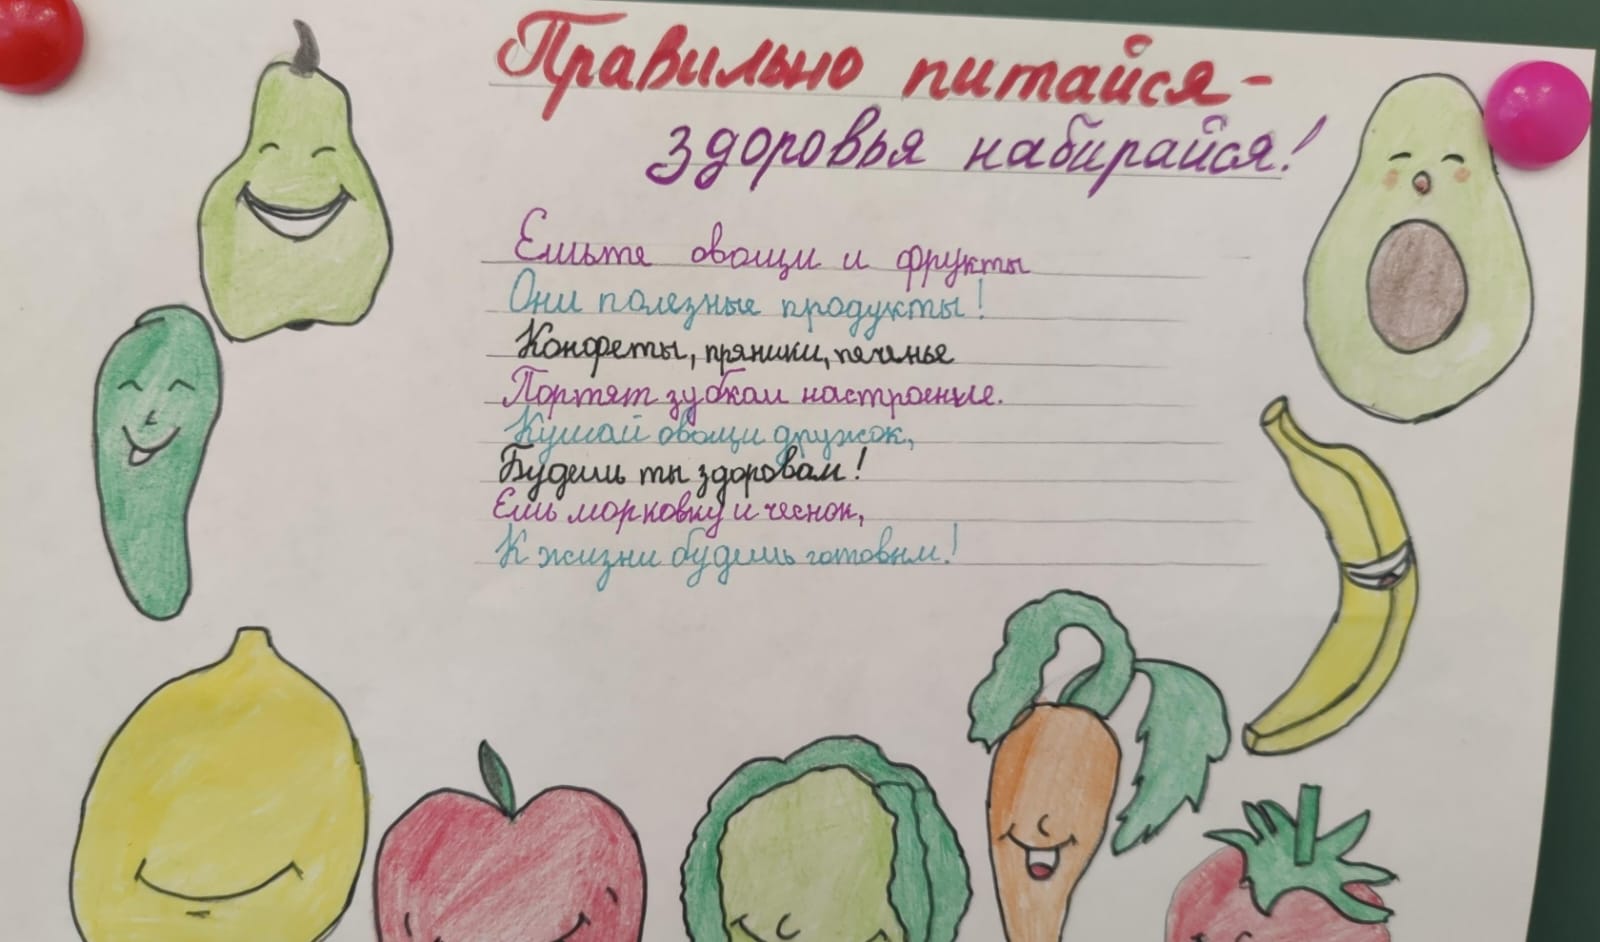 Правильно питайся -
здоровья набирайся!
Ешьте овощи и фрукты
Они полезные продукты!
Конфеты, пряники, печенье
Портят зубкам настроение.
Кушай овощи дружок,
Будешь ты здоровам!
Ешь морковку и чеснок,
К жизни будешь готовым!